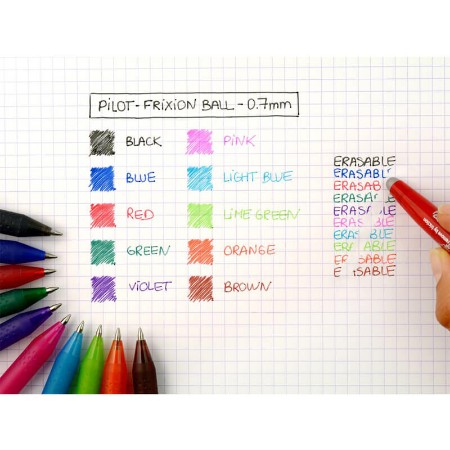 PILOT-FRIXION BALL-0.7mm
BLACK
BLUE
RED
GREEN
VIOLET
PINK
LIGHT BLUE
LIME GREEN
ORANGE
BROWN
ERASABLE
ERASABL
ERASAB
ERASABLE
ERASABLE
ERAS BLE
ERAS BLE
ER ABLE
ER SABLE
E SABLE